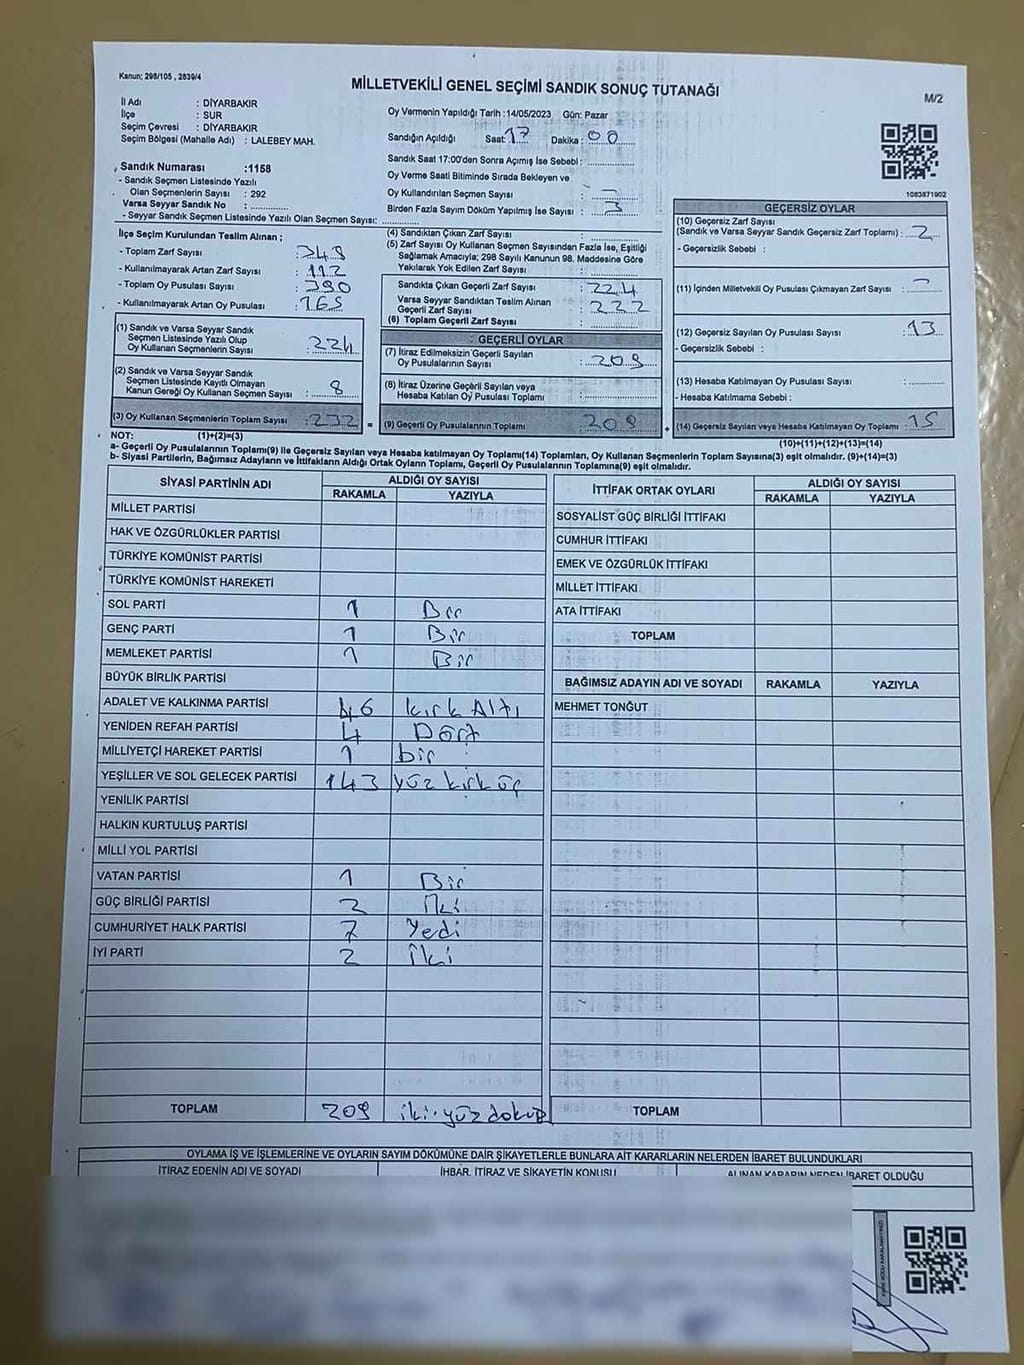 Kanun; 298/105 , 2839/4
MİLLETVEKİLİ GENEL SEÇİMİ SANDIK SONUÇ TUTANAĞI
M/2
İl Adı : DİYARBAKIR
İlçe : SUR
Seçim Çevresi : DİYARBAKIR
Seçim Bölgesi (Mahalle Adı) : LALEBEY MAH.
Sandık Numarası :1158
- Sandık Seçmen Listesinde Yazılı
Olan Seçmenlerin Sayısı : 292
Varsa Seyyar Sandık No :
- Seyyar Sandık Seçmen Listesinde Yazılı Olan Seçmen Sayısı:
İlçe Seçim Kurulundan Teslim Alınan ;
- Toplam Zarf Sayısı :
- Kullanılmayarak Artan Zarf Sayısı : 112
- Toplam Oy Pusulası Sayısı : 390
- Kullanılmayarak Artan Oy Pusulası : 165
(1) Sandık ve Varsa Seyyar Sandık
Seçmen Listesinde Yazılı Olup
Oy Kullanan Seçmenlerin Sayısı : 224
(2) Sandık ve Varsa Seyyar Sandık
Seçmen Listesinde Kayıtlı Olmayan
Kanun Gereği Oy Kullanan Seçmen Sayısı : 8
(3) Oy Kullanan Seçmenlerin Toplam Sayısı : 232
Oy Vermenin Yapıldığı Tarih :14/05/2023 Gün: Pazar
Sandığın Açıldığı Saat: 17 Dakika : 00
Sandık Saat 17:00'den Sonra Açımış İse Sebebi :
Oy Verme Saati Bitiminde Sırada Bekleyen ve
Oy Kullandırılan Seçmen Sayısı :
Birden Fazla Sayım Döküm Yapılmış İse Sayısı : 3
(4) Sandıktan Çıkan Zarf Sayısı :
(5) Zarf Sayısı Oy Kullanan Seçmen Sayısından Fazla İse, Eşitliği
Sağlamak Amacıyla; 298 Sayılı Kanunun 98. Maddesine Göre
Yakılarak Yok Edilen Zarf Sayısı :
Sandıkta Çıkan Geçerli Zarf Sayısı : 224
Varsa Seyyar Sandıktan Teslim Alınan
Geçerli Zarf Sayısı : 222
(6) Toplam Geçerli Zarf Sayısı :
GEÇERLİ OYLAR
(7) İtiraz Edilmeksizin Geçerli Sayılan
Oy Pusulalarının Sayısı : 209
(8) İtiraz Üzerine Geçerli Sayılan veya
Hesaba Katılan Oy Pusulası Toplamı :
= (9) Geçerli Oy Pusulalarının Toplamı : 209
1083871902
GEÇERSİZ OYLAR
(10) Geçersiz Zarf Sayısı
(Sandık ve Varsa Seyyar Sandık Geçersiz Zarf Toplamı) : 2
- Geçersizlik Sebebi :
(11) İçinden Milletvekili Oy Pusulası Çıkmayan Zarf Sayısı :
(12) Geçersiz Sayılan Oy Pusulası Sayısı : 13
- Geçersizlik Sebebi :
(13) Hesaba Katılmayan Oy Pusulası Sayısı :
- Hesaba Katılmama Sebebi :
+ (14) Geçersiz Sayılan veya Hesaba Katılmayan Oy Toplamı : 15
NOT: (1)+(2)=(3) (10)+(11)+(12)+(13)=(14)
a- Geçerli Oy Pusulalarının Toplamı(9) ile Geçersiz Sayılan veya Hesaba katılmayan Oy Toplamı(14) Toplamları, Oy Kullanan Seçmenlerin Toplam Sayısına(3) eşit olmalıdır. (9)+(14)=(3)
b- Siyasi Partilerin, Bağımsız Adayların ve İttifakların Aldığı Ortak Oyların Toplamı, Geçerli Oy Pusulalarının Toplamına(9) eşit olmalıdır.
SİYASİ PARTİNİN ADI ALDIĞI OY SAYISI
RAKAMLA YAZIYLA
MİLLET PARTİSİ
HAK VE ÖZGÜRLÜKLER PARTİSİ
TÜRKİYE KOMÜNİST PARTİSİ
TÜRKİYE KOMÜNİST HAREKETİ
SOL PARTİ 1 Bir
GENÇ PARTİ 1 Bir
MEMLEKET PARTİSİ 1 Bir
BÜYÜK BİRLİK PARTİSİ
ADALET VE KALKINMA PARTİSİ 46 kırk Altı
YENİDEN REFAH PARTİSİ 4 Dört
MİLLİYETÇİ HAREKET PARTİSİ 1 bir
YEŞİLLER VE SOL GELECEK PARTİSİ 143 yüz kırk üç
YENİLİK PARTİSİ
HALKIN KURTULUŞ PARTİSİ
MİLLİ YOL PARTİSİ
VATAN PARTİSİ 1 Bir
GÜÇ BİRLİĞİ PARTİSİ 2 İki
CUMHURİYET HALK PARTİSİ 7 Yedi
İYİ PARTİ 2 İki
TOPLAM 209 iki yüz dokuz
İTTİFAK ORTAK OYLARI ALDIĞI OY SAYISI
RAKAMLA YAZIYLA
SOSYALİST GÜÇ BİRLİĞİ İTTİFAKI
CUMHUR İTTİFAKI
EMEK VE ÖZGÜRLÜK İTTİFAKI
MİLLET İTTİFAKI
ATA İTTİFAKI
TOPLAM
BAĞIMSIZ ADAYIN ADI VE SOYADI RAKAMLA YAZIYLA
MEHMET TONĞUT
TOPLAM
OYLAMA İŞ VE İŞLEMLERİNE VE OYLARIN SAYIM DÖKÜMÜNE DAİR ŞİKAYETLERLE BUNLARA AİT KARARLARIN NELERDEN İBARET BULUNDUKLARI
İTİRAZ EDENİN ADI VE SOYADI İHBAR, İTİRAZ VE ŞİKAYETİN KONUSU ALINAN KARARIN NEDEN İBARET OLDUĞU